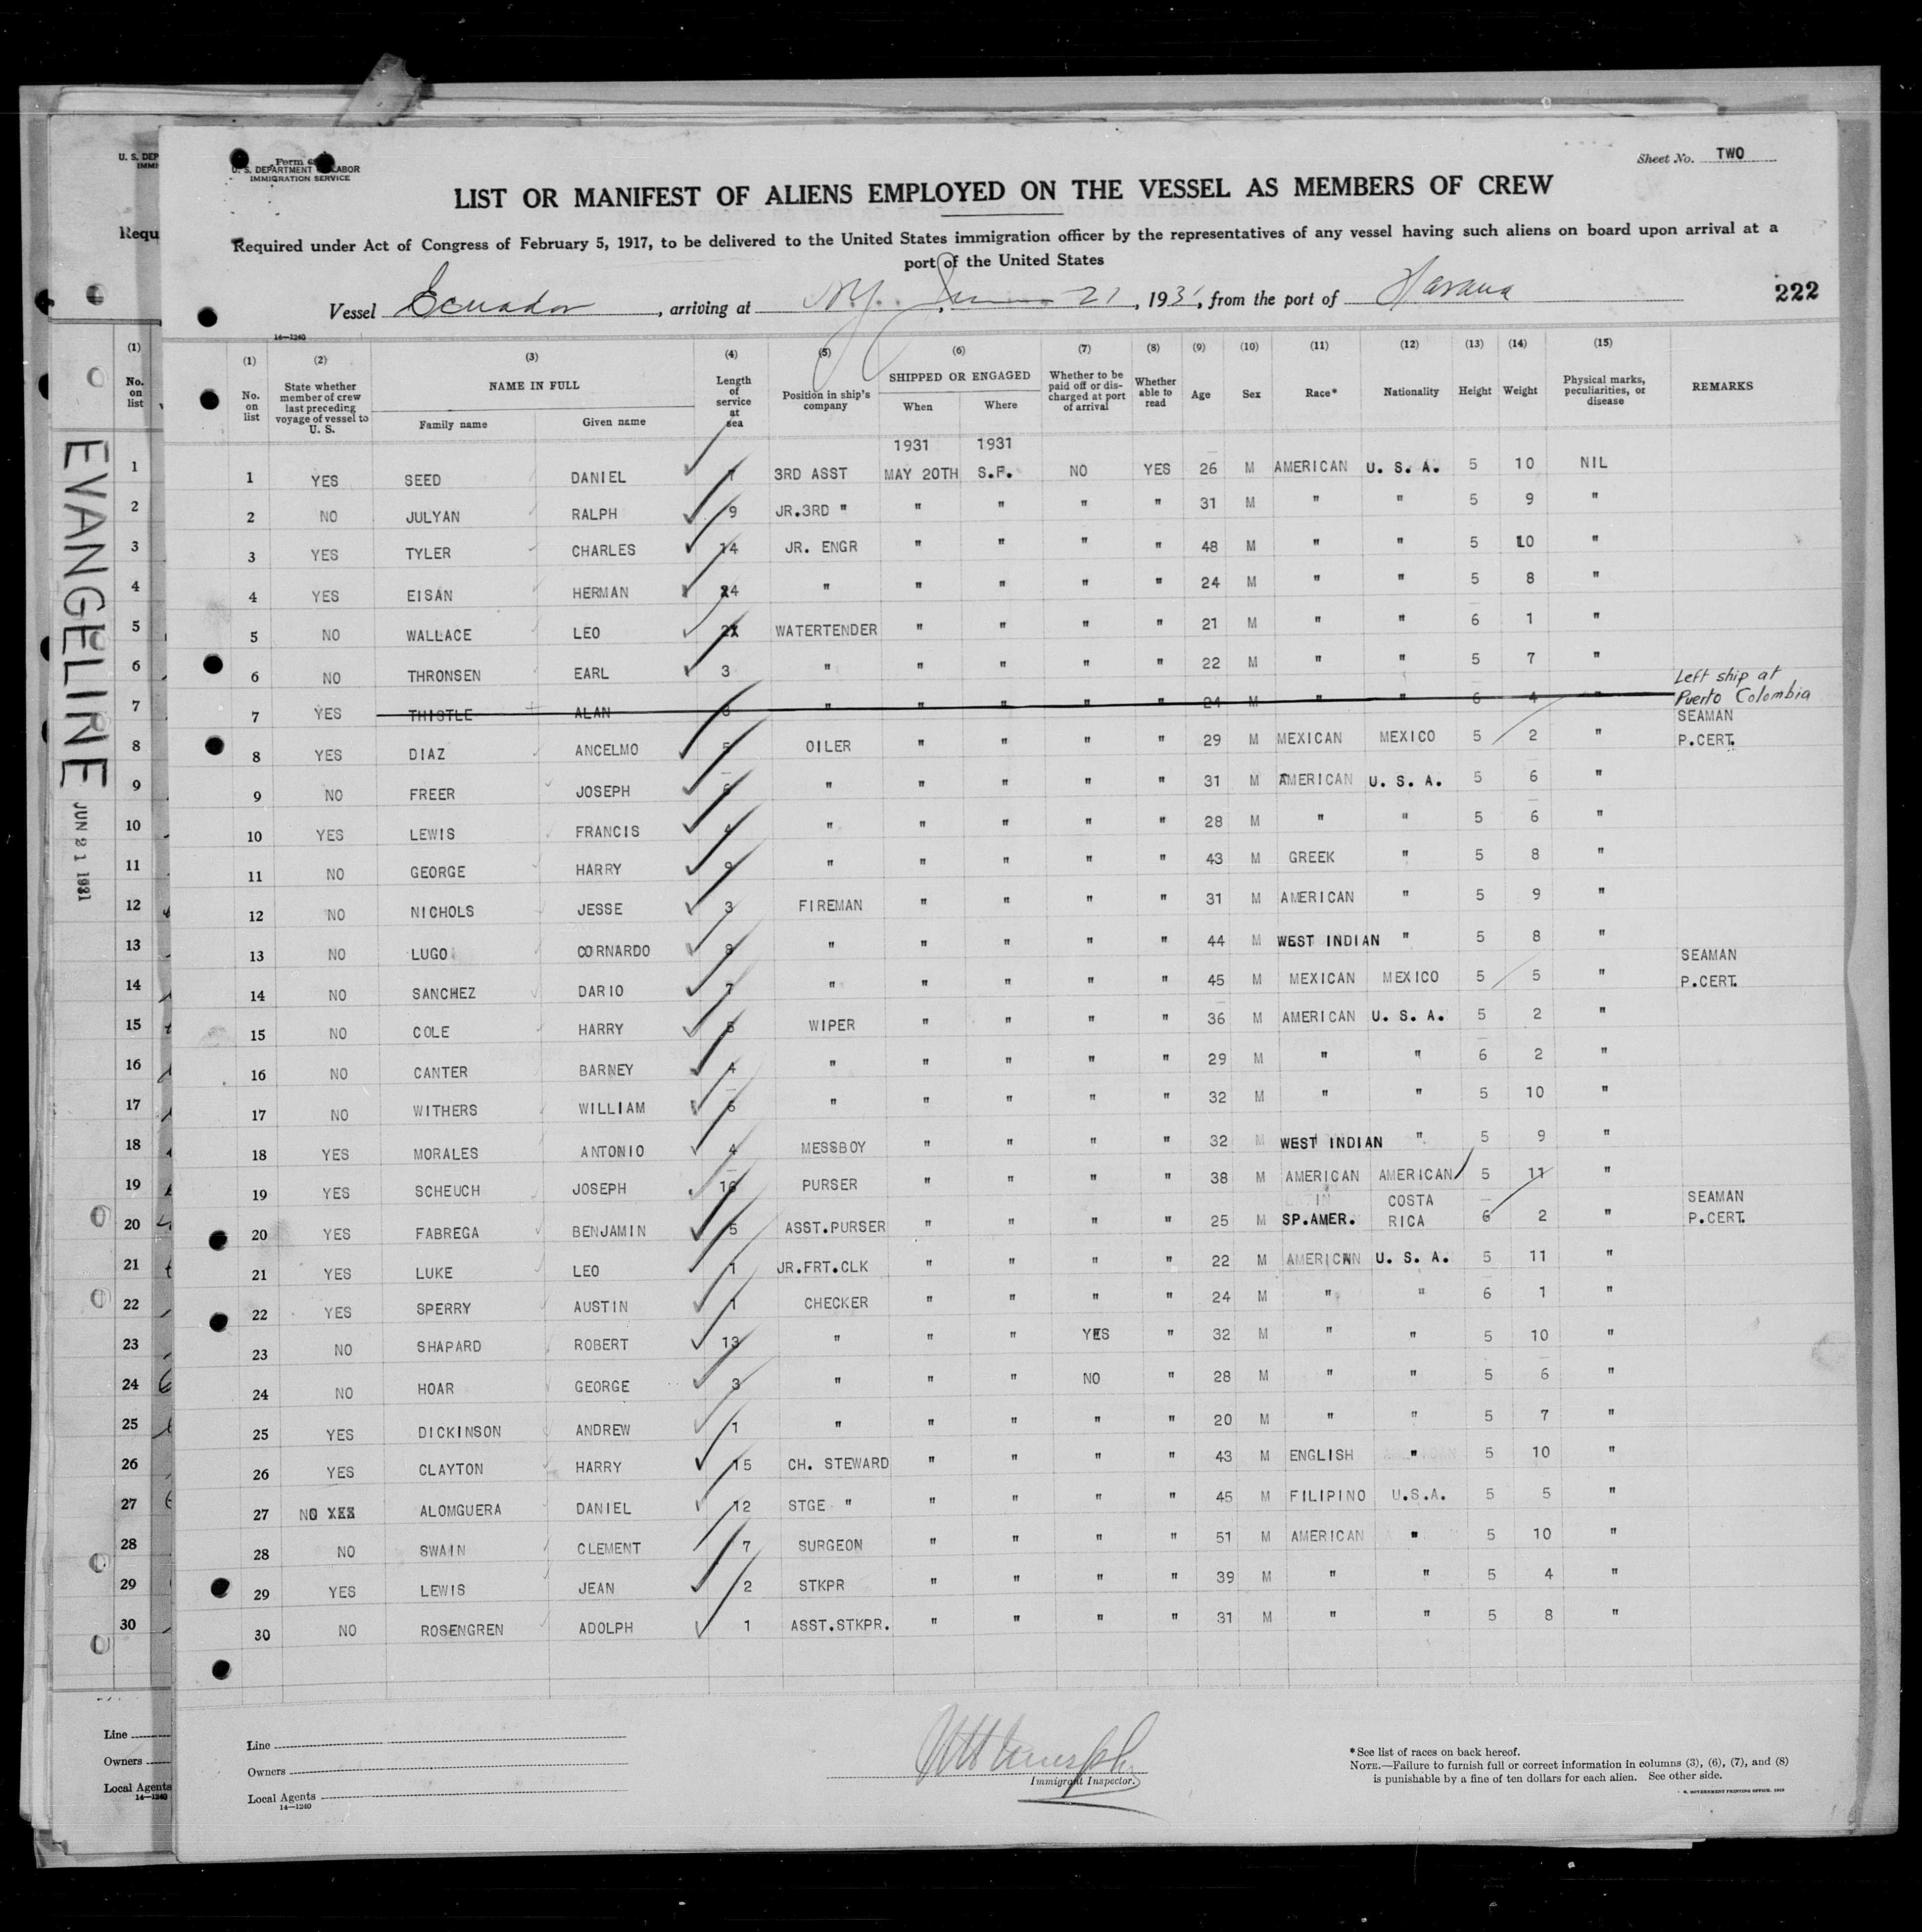 Form 6
U. S. DEPARTMENT LABOR
IMMIGRATION SERVICE
Sheet No. TWO
LIST OR MANIFEST OF ALIENS EMPLOYED ON THE VESSEL AS MEMBERS OF CREW
Required under Act of Congress of February 5, 1917, to be delivered to the United States immigration officer by the representatives of any vessel having such aliens on board upon arrival at a
port of the United States
Vessel Ecuador, arriving at N.Y. June 21, 1931, from the port of Havana
222
14—1240
(1) (2) (3) (4) (5) (6) (7) (8) (9) (10) (11) (12) (13) (14) (15)
No. on list State whether member of crew last preceding voyage of vessel to U. S. NAME IN FULL Family name Given name Length of service at sea Position in ship's company SHIPPED OR ENGAGED When Where Whether to be paid off or discharged at port of arrival Whether able to read Age Sex Race* Nationality Height Weight Physical marks, peculiarities, or disease REMARKS
1931 1931
1 YES SEED DANIEL 7 3RD ASST MAY 20TH S.F. NO YES 26 M AMERICAN U. S. A. 5 10 NIL
2 NO JULYAN RALPH 9 JR.3RD " " " " " 31 M " " 5 9 "
3 YES TYLER CHARLES 14 JR. ENGR " " " " 48 M " " 5 10 "
4 YES EISAN HERMAN 4 " " " " " 24 M " " 5 8 "
5 NO WALLACE LEO 2 WATERTENDER " " " " 21 M " " 6 1 "
6 NO THRONSEN EARL 3 " " " " " 22 M " " 5 7 "
Left ship at
7 YES THISTLE ALAN " " " " " 24 M " " 6 4 " Puerto Colombia
SEAMAN
8 YES DIAZ ANCELMO 5 OILER " " " " 29 M MEXICAN MEXICO 5 2 " P.CERT.
9 NO FREER JOSEPH 6 " " " " " 31 M AMERICAN U. S. A. 5 6 "
10 YES LEWIS FRANCIS 4 " " " " " 28 M " " 5 6 "
11 NO GEORGE HARRY 9 " " " " " 43 M GREEK " 5 8 "
12 NO NICHOLS JESSE 3 FIREMAN " " " " 31 M AMERICAN " 5 9 "
13 NO LUGO CORNARDO 8 " " " " " 44 M WEST INDIAN " 5 8 "
SEAMAN
14 NO SANCHEZ DARIO 7 " " " " " 45 M MEXICAN MEXICO 5 5 " P.CERT.
15 NO COLE HARRY 5 WIPER " " " " 36 M AMERICAN U. S. A. 5 2 "
16 NO CANTER BARNEY 4 " " " " " 29 M " " 6 2 "
17 NO WITHERS WILLIAM 6 " " " " " 32 M " " 5 10 "
18 YES MORALES ANTONIO 4 MESSBOY " " " " 32 M WEST INDIAN " 5 9 "
19 YES SCHEUCH JOSEPH 16 PURSER " " " " 38 M AMERICAN AMERICAN 5 11 "
IN COSTA SEAMAN
20 YES FABREGA BENJAMIN 5 ASST.PURSER " " " " 25 M SP.AMER. RICA 6 2 " P.CERT.
21 YES LUKE LEO 1 JR.FRT.CLK " " " " 22 M AMERICAN U. S. A. 5 11 "
22 YES SPERRY AUSTIN 1 CHECKER " " " " 24 M " " 6 1 "
23 NO SHAPARD ROBERT 13 " " " YES " 32 M " " 5 10 "
24 NO HOAR GEORGE 3 " " " NO " 28 M " " 5 6 "
25 YES DICKINSON ANDREW 1 " " " " " 20 M " " 5 7 "
26 YES CLAYTON HARRY 15 CH. STEWARD " " " " 43 M ENGLISH " 5 10 "
27 NO XXX ALOMGUERA DANIEL 12 STGE " " " " " 45 M FILIPINO U.S.A. 5 5 "
28 NO SWAIN CLEMENT 7 SURGEON " " " " 51 M AMERICAN " 5 10 "
29 YES LEWIS JEAN 2 STKPR " " " " 39 M " " 5 4 "
30 NO ROSENGREN ADOLPH 1 ASST.STKPR. " " " " 31 M " " 5 8 "
Line
Owners
Local Agents
14—1240
Immigrant Inspector.
*See list of races on back hereof.
NOTE.—Failure to furnish full or correct information in columns (3), (6), (7), and (8)
is punishable by a fine of ten dollars for each alien. See other side.
U. S. DEP
IMMI
Requ
(1)
No. on list
EVANGELINE
JUN 21 1931
1
2
3
4
5
6
7
8
9
10
11
12
13
14
15
16
17
18
19
20
21
22
23
24
25
26
27
28
29
30
Line
Owners
Local Agents
14—1240